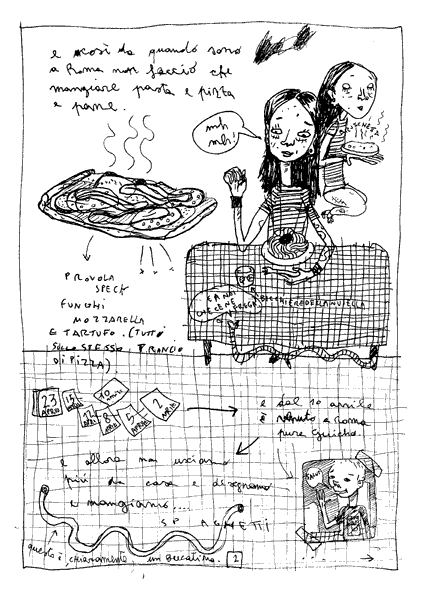 e così da quando sono
a Roma non faccio che
mangiare pasta e pizza
e pane.
mh
mh!
PROVOLA
SPECK
FUNGHI
MOZZARELLA
E TARTUFO. (TUTTO
SULLO STESSO TRANCIO
DI PIZZA)
BICCHIERE DELLA NUTELLA
23
APRILE
15
10
12
8
5
2
APRILE
e dal 10 aprile
è venuto a Roma
pure Guicho.
e allora non usciamo
più da casa e disegniamo
e mangiamo....
SPAGHETTI
CIAO!
questo è, chiaramente, un bucatino.
2